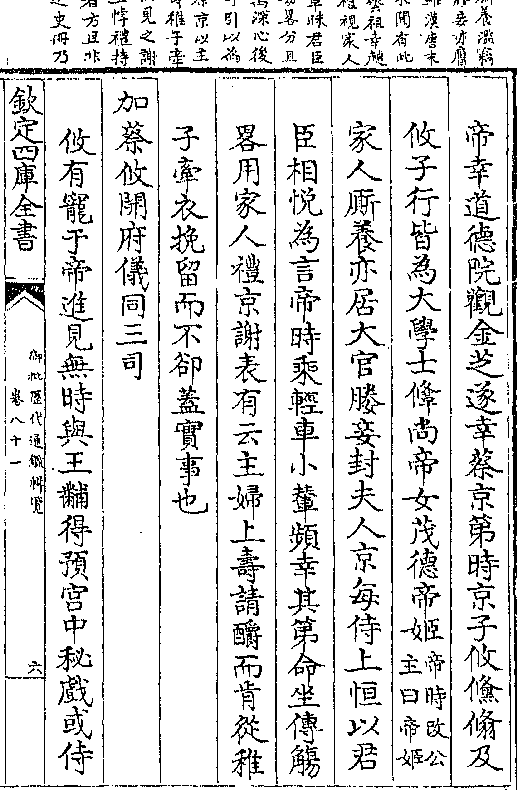 帝幸道德院觀金芝遂幸蔡京第時京子攸儵翛及
攸子行皆為大學士鞗尚帝女茂德帝姬帝時改公主曰帝姬
家人厮養亦居大官媵妾封夫人京每侍上恒以君
臣相悅為言帝時乘輕車小輦頻幸其第命坐傳觴
畧用家人禮京謝表有云主婦上壽請釂而肯從稚
子牽衣挽留而不卻蓋實事也
加蔡攸開府儀同三司
攸有寵于帝進見無時與王黼得預宫中秘戲或侍
欽定四庫全書
御批歷代通鑑輯覽
卷八十一
六